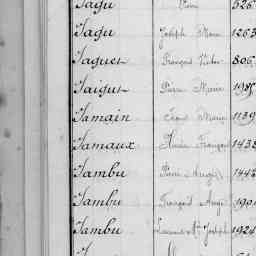 Jagu René 526
Jagu Joseph Marie 1263
Jaguet François Victor 806
Jaigu Pierre Marie 1987
Jamain Marie 1139
Jamaux François 1435
Jambu Pierre Ange 1442
Jambu François Ange 1901
Jambu Laurent Joseph 1924